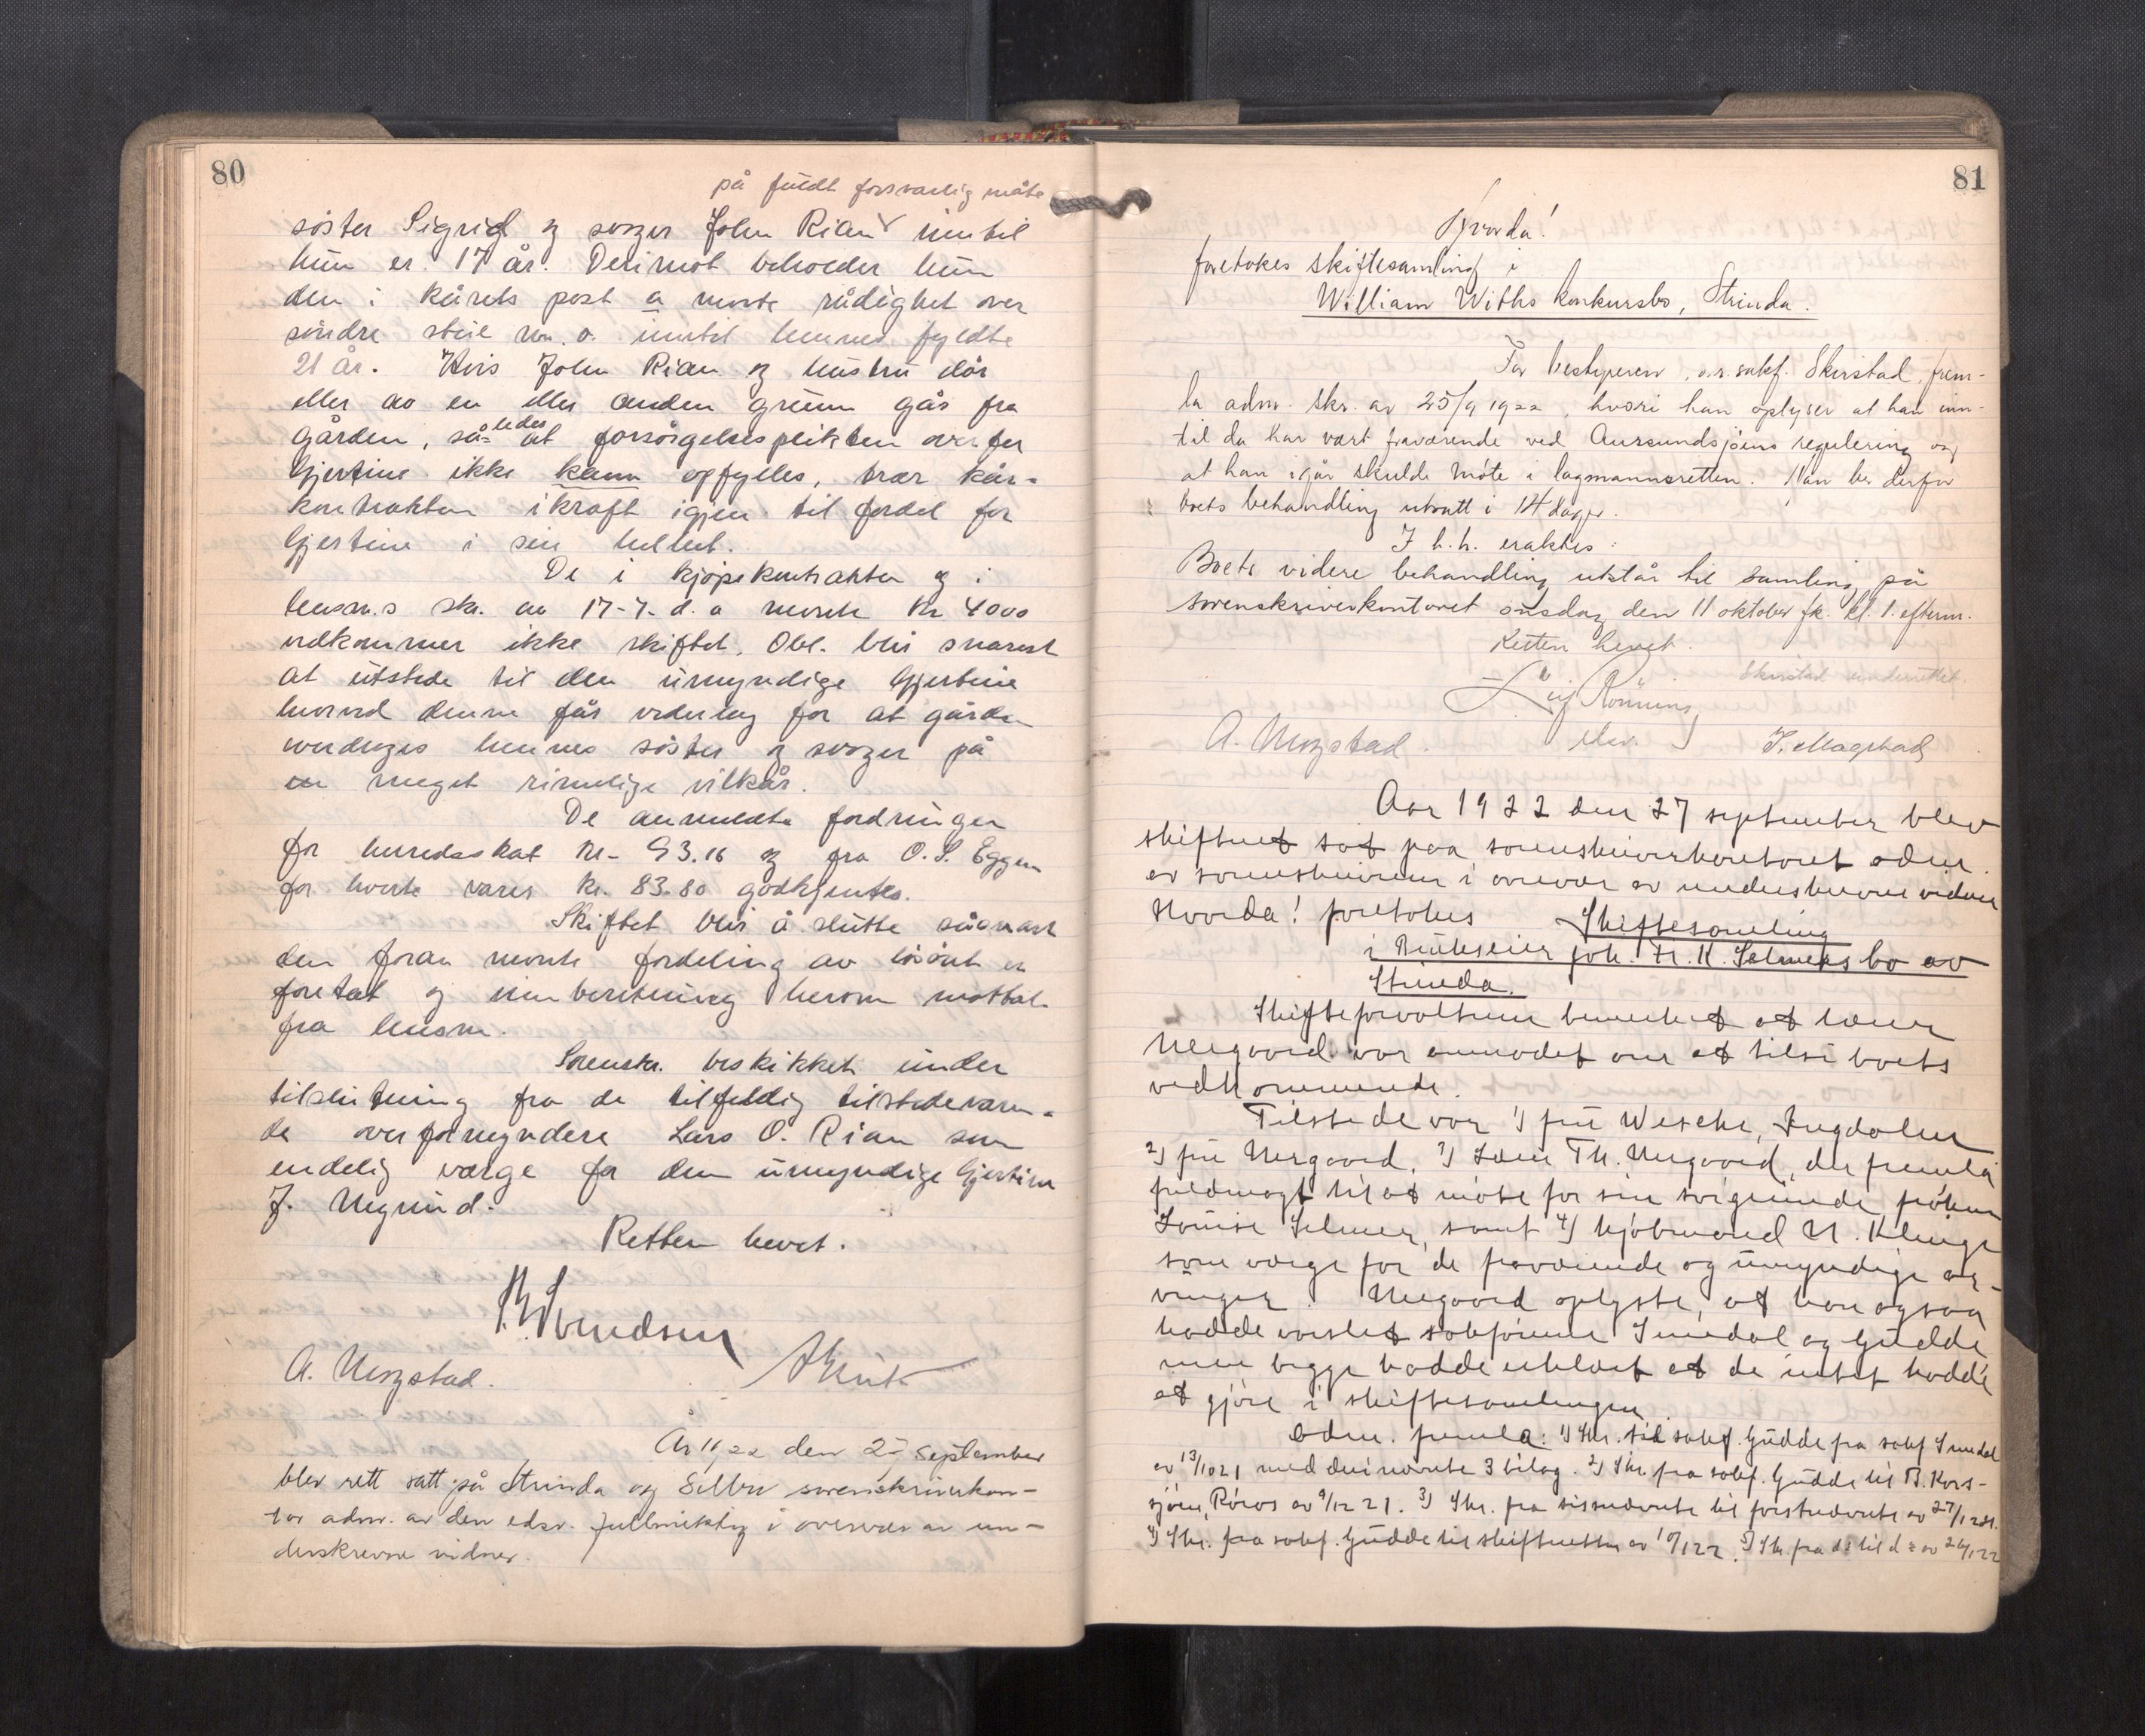 80
på fuldt forsvarlig måte
söster Sigrid og svoger John Rian inntil
hun er 17 år. Derimot beholder hun
den i kårets post a nevnte rådighet over
söndre stue m. v. inntil hennes fyldte
21 år. Hvis John Rian og hustru dör
eller av en eller anden grunn går fra
gården, så-ledes at forsörgelsesplikten overfor
Gjertine ikke kann opfylles, trær kår-
kontrakten ikraft igjen til fordel for
Gjertine i sin helhet.
De i kjöpekontrakten og i
lensm.s skr. av 17-7. d. a nevnte kr 4000
vedkommer ikke skiftet. Obl. blir snarest
at utstede til den umyndige Gjertine
hvorved denne får vederlag for at gården
overdrages hennes söster og svoger på
en meget rimelige vilkår.
De anmeldte fordringer
for herredsskat kr. 93.16 og fra O. S. Eggen
for leverte varer kr. 83.80 godkjentes.
Skiftet blir å slutte såsnart
den foran nevnte fordeling av lösöre er
foretat og innberetning herom mottat
fra lensm.
Sorenskr. beskikket under
tilslutning fra de tilfeldig tilstedeværen-
de overformyndere Lars O. Rian som
endelig værge for den umyndige Gjertine
J. Mygrind.
Retten hevet.
Svendsen
A. Mogstad.
År 1922 den 27 september
blev rett satt på Strinda og Selbu sorenskriverkon-
tor adm. av den edsv. fullmektig i overvær av un-
derskrevne vidner.
81
Hvorda!
foretokes skiftesamling i
William Withs konkursbo, Strinda.
For bestyreren, o.r.sakf. Skirstad, frem-
la adm. skr. av 25/9 1922, hvori han oplyser at han inn-
til da har vært fraværende ved Aursundsjöens regulering og
at han igår skulde möte i lagmannsretten. Han ber derfor
boets behandling utsatt i 14 dager.
I h.h. eraktes:
Boets videre behandling utstår til samling på
sorenskriverkontoret onsdag den 11 oktober fk. kl. 1. efterm.
Retten hevet.
Skirstad underrettet.
Leif Rönning
edsv.
A. Mogstad.
K. Mogstad
Aar 1922 den 27 september blev
skifteret sat paa sorenskriverkontoret adm.
av sorenskriveren i overvær av underskrevne vidner
Hvorda! foretokes Skiftesamling
i Brukseier Joh. Fr. K. Selmers bo av
Strinda.
Skifteforvalteren bemerket at læge
Neergaard var anmodet om at tilsi boets
vedkommende.
Tilstede var 1) fru Wesche, Jugdalen
2) fru Nergaard, 3) Læge Th. Nergaard, der fremla
fuldmagt til at möte for sin svigerinde fröken
Louise Selmer, samt 4) kjöbmand N. Klinge
som værge for de fraværende og umyndige ar-
vinger. Neegaard oplyste, at han ogsaa
hadde varslet sakförerne Smedal og Gudde
men begge hadde erklært at de intet hadde
at gjöre i skiftesamlingen
Adm. fremla: 1) Skr. til sakf. Gudde fra sakf. Smedal
av 13/10 21 med deri nevnte 3 bilag. 2) Skr. fra sakf. Gudde til B. Kors-
sjöen, Röros av 9/12 21. 3) Skr. fra sisnævnte til förstnævnte av 27/12 21.
4) Skr. fra sakf. Gudde til skifteretten av 10/1 22. 5) Skr. fra ds til ds av 24/1 22